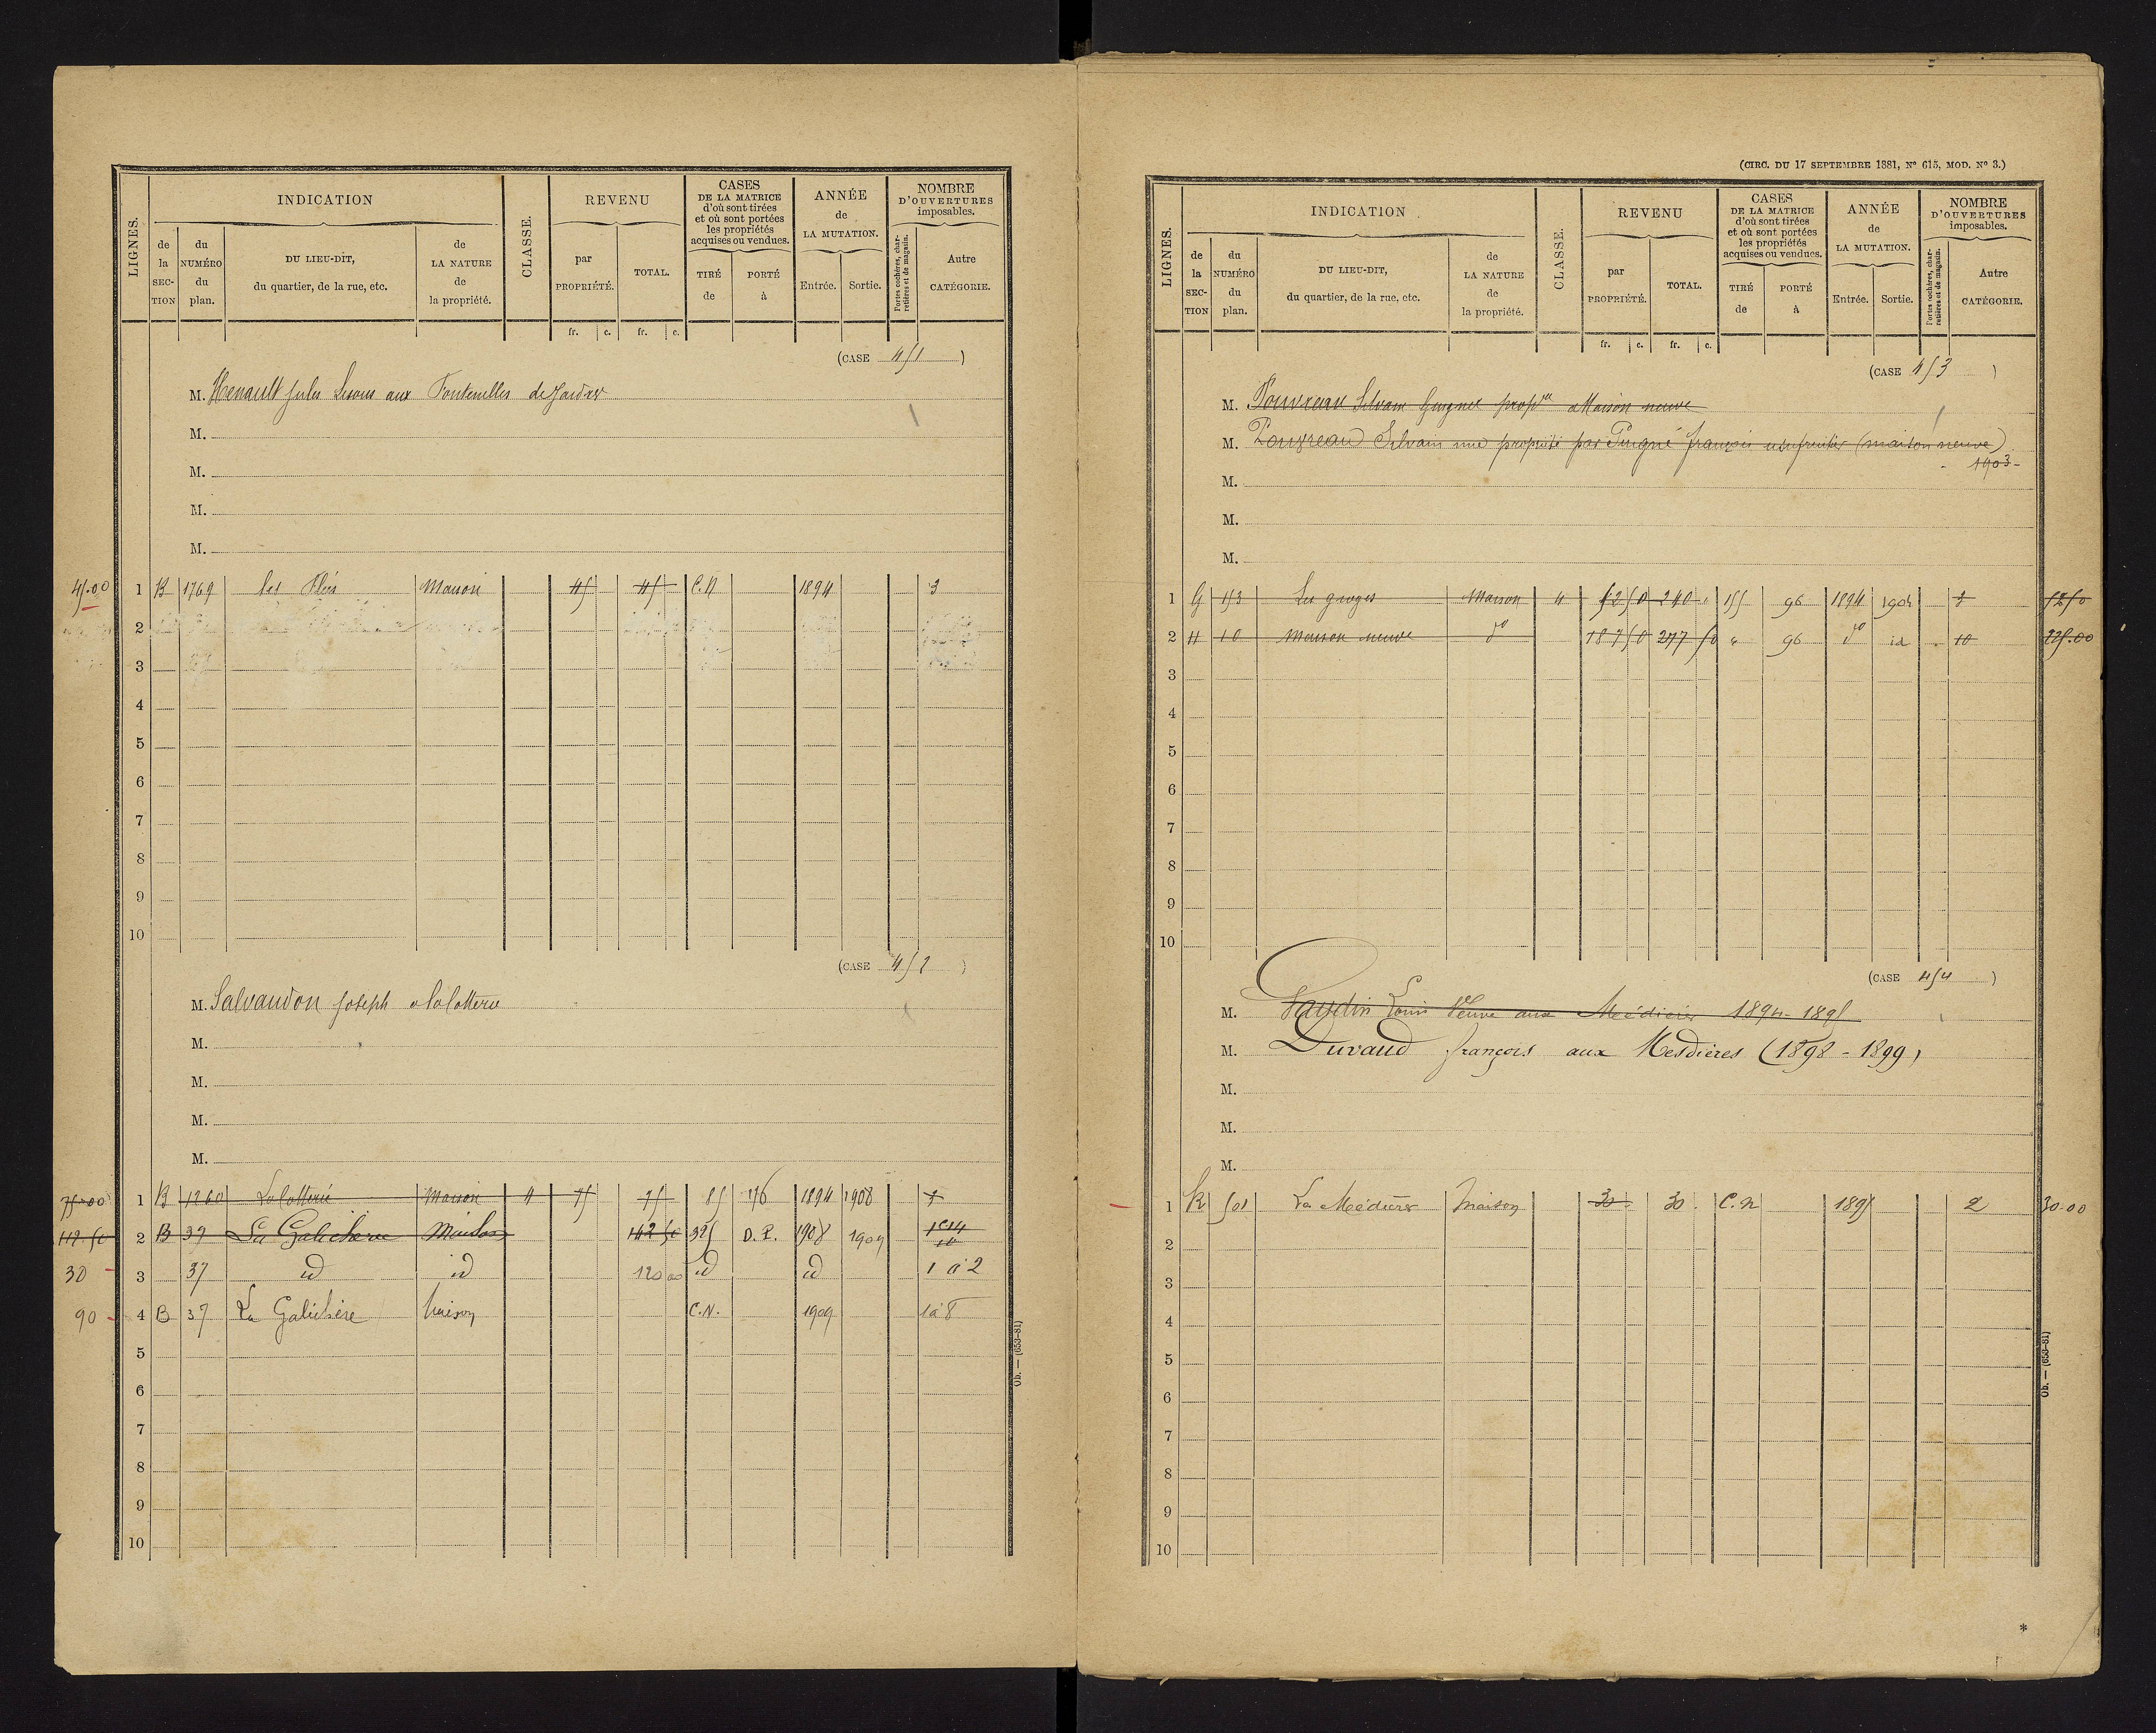 LIGNES.
INDICATION
de la SECTION
du NUMÉRO du plan.
DU LIEU-DIT, du quartier, de la rue, etc.
de LA NATURE de la propriété.
CLASSE.
REVENU
par PROPRIÉTÉ.
TOTAL.
fr. c. fr. c.
CASES DE LA MATRICE d'où sont tirées et où sont portées les propriétés acquises ou vendues.
TIRÉ de
PORTÉ à
ANNÉE de LA MUTATION.
Entrée. Sortie.
NOMBRE D'OUVERTURES imposables.
Portes cochères, charretières et de magasin.
Autre CATÉGORIE.
(CASE 451)
M. Henault Jules aux Fontenilles
M.
M.
M.
M.
45.00 1 B 1769 les Maison 45 45 C.N 1894 3
2
3
4
5
6
7
8
9
10
(CASE 452)
M. Salvaudon Joseph
M.
M.
M.
M.
75.00 1 B 1260 Maison 4 75 75 85 176 1894 1908
112.50 2 B 37 La Galichère Maison 142 50 325 D.P. 1908 1909
30 3 37 id id 120 00 id id 1 à 2
90 4 B 37 La Galichère Maison C.N. 1909 1 à 8
5
6
7
8
9
10
Ob. — (653-81)
(CIRC. DU 17 SEPTEMBRE 1881, Nº 615, MOD. Nº 3.)
LIGNES.
INDICATION
de la SECTION
du NUMÉRO du plan.
DU LIEU-DIT, du quartier, de la rue, etc.
de LA NATURE de la propriété.
CLASSE.
REVENU
par PROPRIÉTÉ.
TOTAL.
fr. c. fr. c.
CASES DE LA MATRICE d'où sont tirées et où sont portées les propriétés acquises ou vendues.
TIRÉ de
PORTÉ à
ANNÉE de LA MUTATION.
Entrée. Sortie.
NOMBRE D'OUVERTURES imposables.
Portes cochères, charretières et de magasin.
Autre CATÉGORIE.
(CASE 453)
M. Pouvreau Silvain Maison neuve
M. Pouvreau Silvain nue propriété par François usufruitier (maison neuve)
1903
M.
M.
M.
1 G 153 Les Maison 4 52 50 240 155 96 1894 1904 52 50
2 H 10 Maison neuve do 187 50 277 50 96 do id 10 225.00
3
4
5
6
7
8
9
10
(CASE 454)
M. Louis Veuve aux Médières 1894-1895
M. Duraud François aux Mesdières (1898-1899)
M.
M.
M.
1 K 501 La Médières Maison 30 30 C.N 1895 2 30.00
2
3
4
5
6
7
8
9
10
Ob. — (653-81)
*